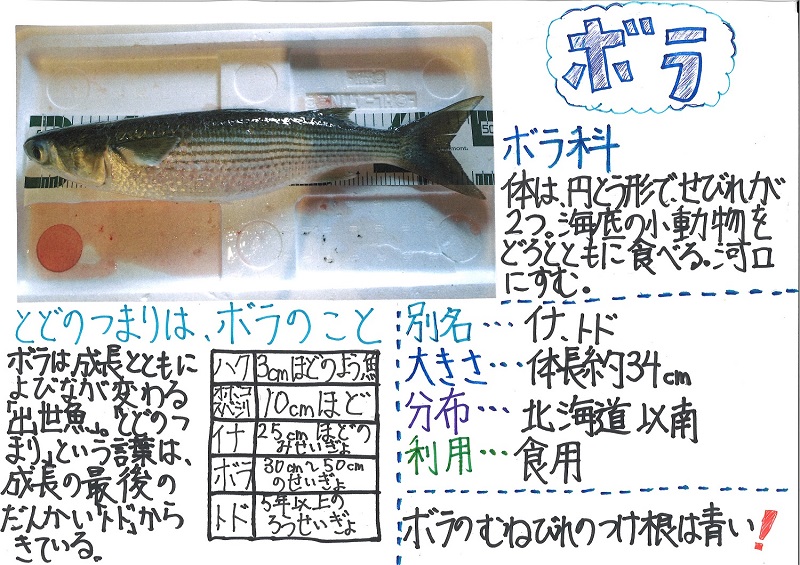 ボラ
ボラ科
体は、円とう形で、せびれが
2つ。海底の小動物を
どろとともに食べる。河口
にすむ。
とどのつまりは、ボラのこと
ボラは、成長とともに
よびなが変わる
「出世魚」。「とどのつ
まり」という言葉は、
成長の最後の
だんかい「トド」から
きている。
ハク 3cmほどのよう魚
オボコ スバシリ 10cmほど
イナ 25cmほどの みせいぎょ
ボラ 30cm〜50cm のせいぎょ
トド 5年以上の ろうせいぎょ
別名… イナ、トド
大きさ… 体長約34cm
分布… 北海道以南
利用… 食用
ボラのむねびれのつけ根は青い!